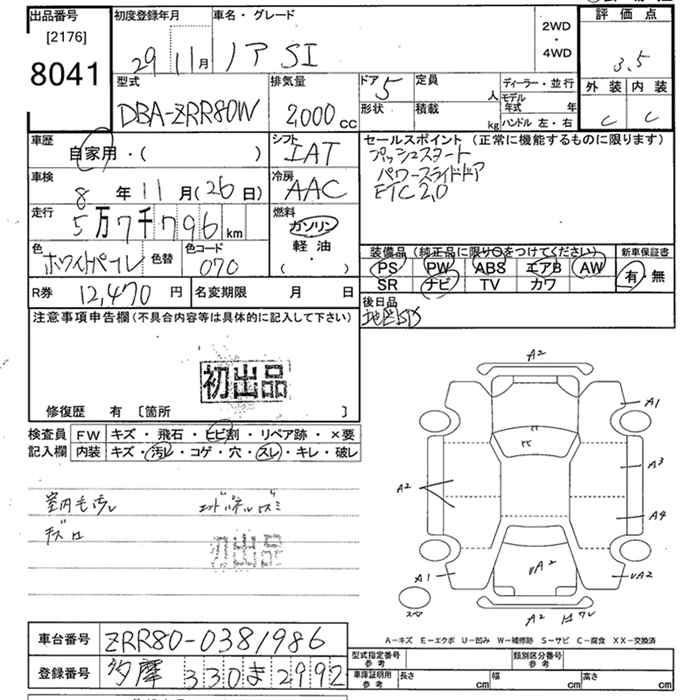 出品番号
[2176]
8041
初度登録年月
29 11月
車名・グレード
ノア SI
2WD
・
4WD
評価点
3.5
外装 内装
C C
型式
DBA-ZRR80W
排気量
2,000cc
ドア 5
形状
定員 人
積載 kg
ディーラー・並行
モデル年式 年
ハンドル 左・右
車歴
自家用・( )
シフト
IAT
車検
8年11月(26日)
冷房
AAC
走行
5万7千796km
燃料
ガソリン
軽油
( ・ )
色
ホワイトパール
色替
色コード
070
R券 12,470円
名変期限 月 日
セールスポイント (正常に機能するものに限ります)
プッシュスタート
パワースライドドア
ETC2.0
装備品 (純正品に限り○をつけてください)
PS PW ABS エアB AW
SR ナビ TV カワ
新車保証書
有・無
後日品
地図SD
注意事項申告欄(不具合内容等は具体的に記入して下さい)
初出品
修復歴 有 [箇所 ]
検査員記入欄
FW キズ・飛石・ヒビ割・リペア跡・×要
内装 キズ・汚レ・コゲ・穴・スレ・キレ・破レ
室内毛汚レ
キズ
初出品
A2
A1
A3
A2
A4
A1
VA2
VA2
A2
A-キズ E-エクボ U-凹み W-補修跡 S-サビ C-腐食 XX-交換済
車台番号 ZRR80-0381986
登録番号 多摩 330 ま 2992
型式指定番号 参考
類別区分番号 参考
車庫証明用 参考
長さ cm
幅 cm
高さ cm